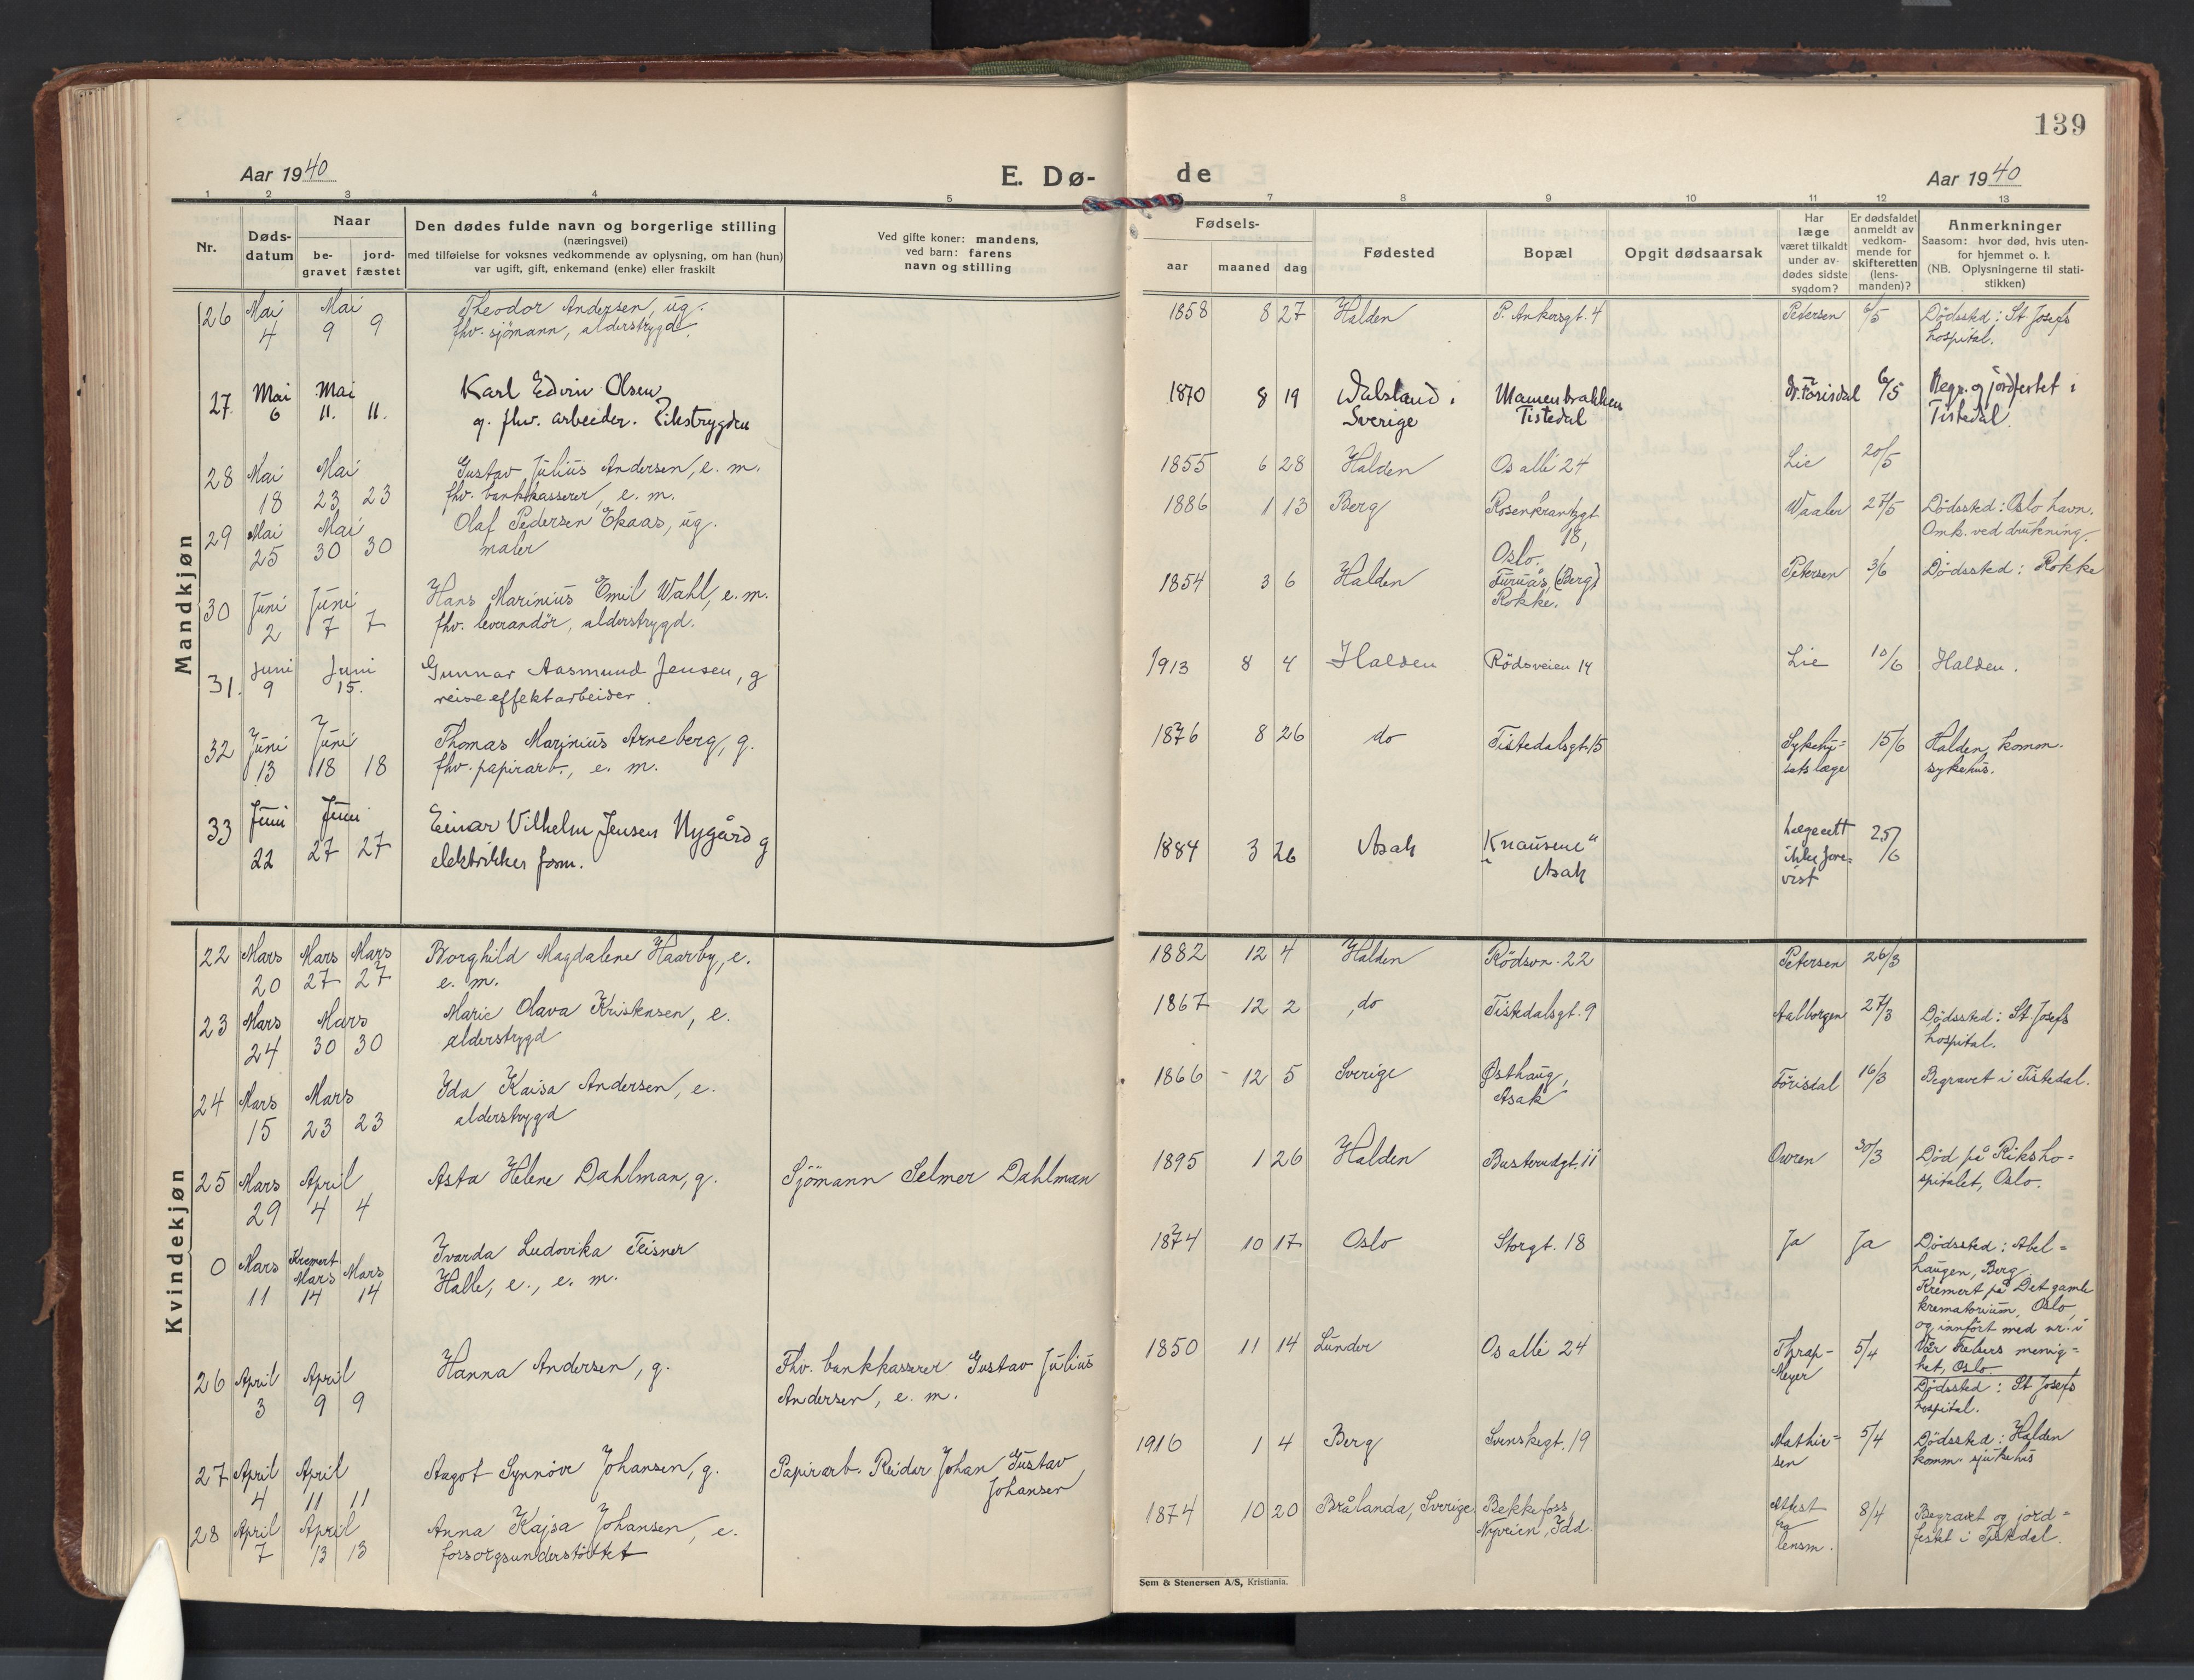 139
Aar 1940
E. Dø-
de
Aar 1940
1 2 3 4 5 7 8 9 10 11 12 13
Nr.
Døds-
datum
Naar
be-
gravet
jord-
fæstet
Den dødes fulde navn og borgerlige stilling
(næringsvei)
med tilføielse for voksnes vedkommende av oplysning, om han (hun)
var ugift, gift, enkemand (enke) eller fraskilt
Ved gifte koner: mandens,
ved barn: farens
navn og stilling
Fødsels-
aar maaned dag
Fødested
Bopæl
Opgit dødsaarsak
Har
læge
været tilkaldt
under av-
dødes sidste
sygdom?
Er dødsfaldet
anmeldt av
vedkom-
mende for
skifteretten
(lens-
manden)?
Anmerkninger
Saasom: hvor død, hvis uten-
for hjemmet o. l.
(NB. Oplysningerne til stati-
stikken)
Mandkjøn
26 Mai 4 Mai 9 9 Theodor Andersen, ug.
fhv. sjömann, alderstrygd.
1858 8 27 Halden P. Ankersgt. 4 Petersen 6/5 Dödssted: St. Josefs
hospital.
27. Mai 6 Mai 11. 11. Karl Edvin Olsen
g. fhv. arbeider. Rikstrygden
1870 8 19 Dalsland i
Sverige
Mamenbrakken
Tistedal
Dr. Förisdal 6/5 Begr. og jordfestet i
Tistedal.
28 Mai 18 Mai 23 23 Gustav Julius Andersen, e. m.
fhv. bankkasserer, e. m.
1855 6 28 Halden Os allé 24 Lie 20/5
29 Mai 25 Mai 30 30 Olaf Pedersen Ekaas, ug.
maler
1886 1 13 Berg Rosenkrantzgt
18,
Oslo.
Waaler 27/5 Dödssted: Oslo havn.
Omk. ved drukning.
30 Juni 2 Juni 7 7 Hans Marinius Emil Wahl, e. m.
fhv. leverandör, alderstrygd.
1854 3 6 Halden Furuås, (Berg)
Rokke.
Petersen 3/6 Dödssted: Rokke
31. Juni 9 Juni 15. Gunnar Aasmund Jensen, g
reiseeffektarbeider.
1913 8 4 Halden Rödsveien 14 Lie 10/6 Halden.
32 Juni 13 Juni 18 18 Thomas Marinius Arneberg, g.
fhv. papirarb., e. m.
1876 8 26 do Tistedalsgt. 15 Sykehu-
sets læge
15/6 Halden komm.
sykehus.
33 Juni 22 Juni 27 27 Einar Vilhelm Jensen Nygård g
elektriker form.
1884 3 26 Asak „Knausene"
Asak
Lægeatt
ikke fore-
vist
25/6
Kvindekjøn
22 Mars 20 Mars 27 Mars 27 Borghild Magdalene Haarby, e.
e. m.
1882 12 4 Halden Rödsvn. 22 Petersen 26/3
23 Mars 24 Mars 30 30 Marie Olava Kristensen, e.
alderstrygd
1867 12 2 do Tistedalsgt. 9 Aalborgen 27/3 Dödssted: St. Josefs
hospital.
24 Mars 15 Mars 23 23 Ida Kaisa Andersen, e.
alderstrygd
1866 12 5 Sverige Østhaug,
Asak
Förisdal 16/3 Begravet i Tistedal.
25 Mars 29 April 4 4 Asta Helene Dahlman, g. Sjömann Selmer Dahlman
1895 1 26 Halden Busterudgt. 11 Owren 30/3 Död på Riksho-
spitalet, Oslo.
0 Mars 11 Kremert Mars 14 Mars 14 Ivarda Ludovika Teisner
Halle, e., e. m.
1874 10 17 Oslo Storgt. 18 Ja Ja Dödssted: Abel-
haugen, Berg.
Kremert på Det gamle
krematorium, Oslo,
og innfört med nr. i
Vår Frelsers menig-
het, Oslo.
26 April 3 April 9 9 Hanna Andersen, g. Fhv. bankkasserer Gustav Julius
Andersen, e. m.
1850 11 14 Lunder Os allé 24 Thrap-
Meyer
5/4 Dödssted: St. Josefs
hospital.
27 April 4 April 11 11 Aagot Synnöve Johansen, g. Papirarb. Reidar Johan Gustav
Johansen
1916 1 4 Berg Svenskegt. 19 Mathie-
sen
5/4 Dödssted: Halden
komm. sjukehus
28 April 7 April 13 13 Anna Kajsa Johansen, e.
forsorgsunderstöttet
1874 10 20 Brålanda, Sverige. Bekkefoss,
Nyveien, Idd.
Attest
fra
lensm.
8/4 Begravet og jord-
festet i Tistedal.
Sem & Stenersen A/S, Kristiania.